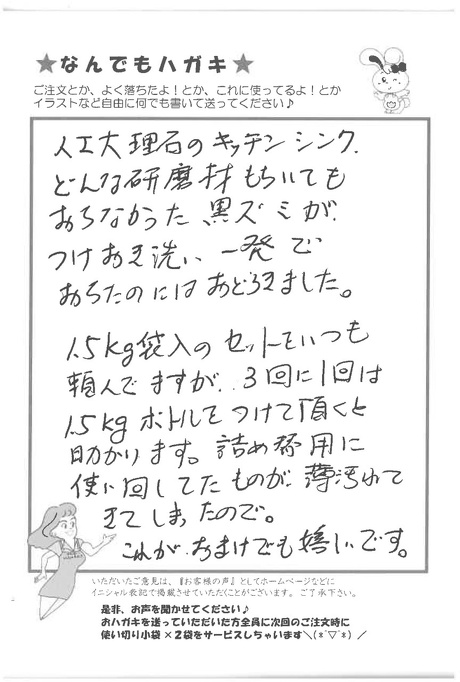 ★なんでもハガキ★
ご注文とか、よく落ちたよ！とか、これに使ってるよ！とか
イラストなど自由に何でも書いて送ってください♪
人工大理石のキッチンシンク、
どんな研磨材もちいても
おちなかった黒ズミが、
つけおき洗い一発で
おちたのにはおどろきました。
1.5kg袋入のセットをいつも
頼んでますが、3回に1回は
1.5kgボトルをつけて頂くと
助かります。詰め替用に
使い回してたものが、薄汚れて
きてしまったので。
これがおまけでも嬉しいです。
いただいたご意見は、『お客様の声』としてホームページなどに
イニシャル表記で掲載させていただくことがございます。ご了承下さい。
是非、お声を聞かせてください♪
おハガキを送っていただいた方全員に次回のご注文時に
使い切り小袋×2袋をサービスしちゃいます＼(*´▽`*)／